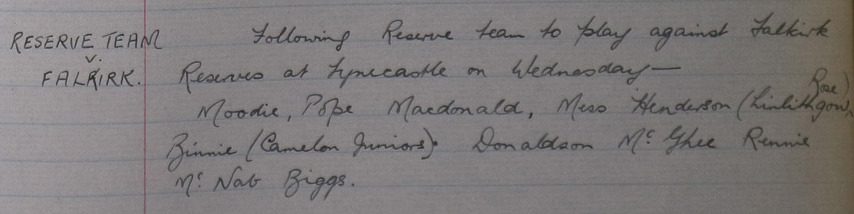 RESERVE TEAM
V.
FALKIRK.
Following Reserve team to play against Falkirk
Reserves at Tynecastle on Wednesday —
Moodie, Pope Macdonald, Mess Henderson (Linlithgow Rose)
Binnie (Camelon Juniors). Donaldson Mc Ghee Rennie
Mc Nab Biggs.